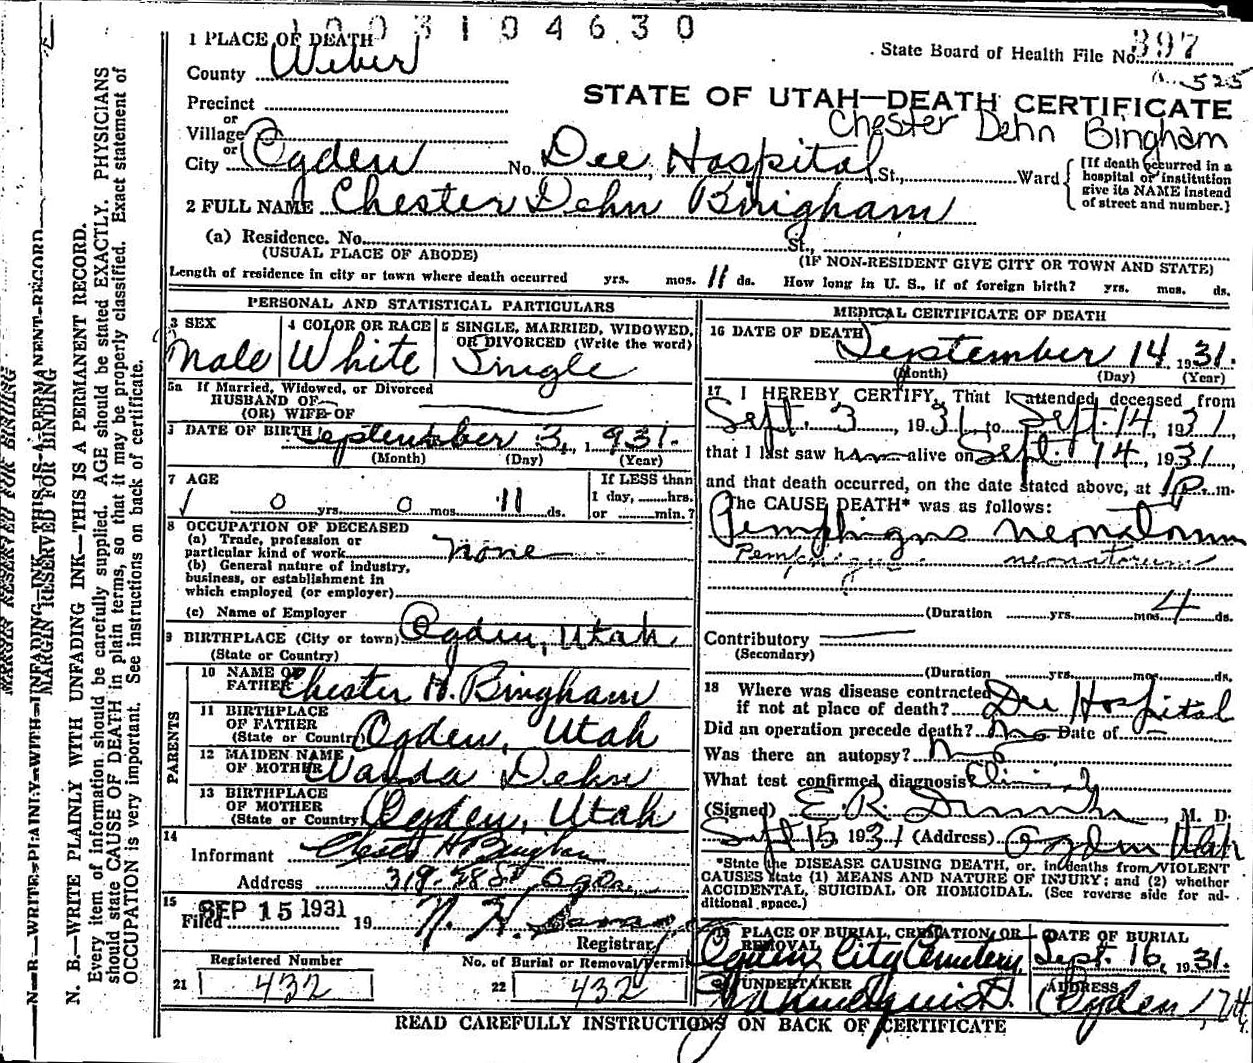 1003104630
1 PLACE OF DEATH
State Board of Health File No. 397
County Weber
525
STATE OF UTAH—DEATH CERTIFICATE
Precinct
or
Village
Chester Dehn Bingham
or
City Ogden No. Dee Hospital St., Ward
[If death occurred in a
hospital or institution
give its NAME instead
of street and number.]
2 FULL NAME Chester Dehn Bingham
(a) Residence. No. St.,
(USUAL PLACE OF ABODE) (IF NON-RESIDENT GIVE CITY OR TOWN AND STATE)
Length of residence in city or town where death occurred yrs. mos. 11 ds. How long in U. S., if of foreign birth? yrs. mos. ds.
PERSONAL AND STATISTICAL PARTICULARS
3 SEX
Male
4 COLOR OR RACE
White
5 SINGLE, MARRIED, WIDOWED,
OR DIVORCED (Write the word)
Single
5a If Married, Widowed, or Divorced
HUSBAND OF
(OR) WIFE OF
DATE OF BIRTH September 3, 1931.
(Month) (Day) (Year)
7 AGE
0 yrs. 0 mos. 11 ds.
If LESS than
1 day, hrs.
or min.?
8 OCCUPATION OF DECEASED
(a) Trade, profession or
particular kind of work none
(b) General nature of industry,
business, or establishment in
which employed (or employer)
(c) Name of Employer
9 BIRTHPLACE (City or town) Ogden, Utah
(State or Country)
PARENTS
10 NAME OF
FATHER Chester H. Bingham
11 BIRTHPLACE
OF FATHER
(State or Country) Ogden, Utah
12 MAIDEN NAME
OF MOTHER Wanda Dehn
13 BIRTHPLACE
OF MOTHER
(State or Country) Ogden, Utah
14
Informant Chester H Bingham
Address 319-
15
Filed SEP 15 1931 19
Registrar
Registered Number
21 432
No. of Burial or Removal Permit
22 432
MEDICAL CERTIFICATE OF DEATH
16 DATE OF DEATH
September 14 1931.
(Month) (Day) (Year)
17 I HEREBY CERTIFY, That I attended deceased from
Sept. 3, 1931, to Sept. 14, 1931,
that I last saw him alive on Sept. 14, 1931,
and that death occurred, on the date stated above, at 1 p. m.
The CAUSE DEATH* was as follows:
Pemphigus neonatorum
Pemphigus neonatorum
(Duration yrs. mos. 4 ds.
Contributory
(Secondary)
(Duration yrs. mos. ds.
18 Where was disease contracted
if not at place of death? Dee Hospital
Did an operation precede death? no Date of
Was there an autopsy? no
What test confirmed diagnosis Clinical
(Signed) E. R. M. D.
Sept 15, 1931 (Address) Ogden Utah
*State the DISEASE CAUSING DEATH, or, in deaths from VIOLENT
CAUSES state (1) MEANS AND NATURE OF INJURY; and (2) whether
ACCIDENTAL, SUICIDAL OR HOMICIDAL. (See reverse side for ad-
ditional space.)
19 PLACE OF BURIAL, CREMATION OR
REMOVAL
Ogden City Cemetery
DATE OF BURIAL
Sept. 16, 1931.
UNDERTAKER
ADDRESS
Ogden, Ut.
READ CAREFULLY INSTRUCTIONS ON BACK OF CERTIFICATE
MARGIN RESERVED FOR BINDING
N. B.—WRITE PLAINLY WITH UNFADING INK—THIS IS A PERMANENT RECORD
MARGIN RESERVED FOR BINDING
N. B.—WRITE PLAINLY WITH UNFADING INK—THIS IS A PERMANENT RECORD.
Every item of information should be carefully supplied. AGE should be stated EXACTLY. PHYSICIANS
should state CAUSE OF DEATH in plain terms, so that it may be properly classified. Exact statement of
OCCUPATION is very important. See instructions on back of certificate.